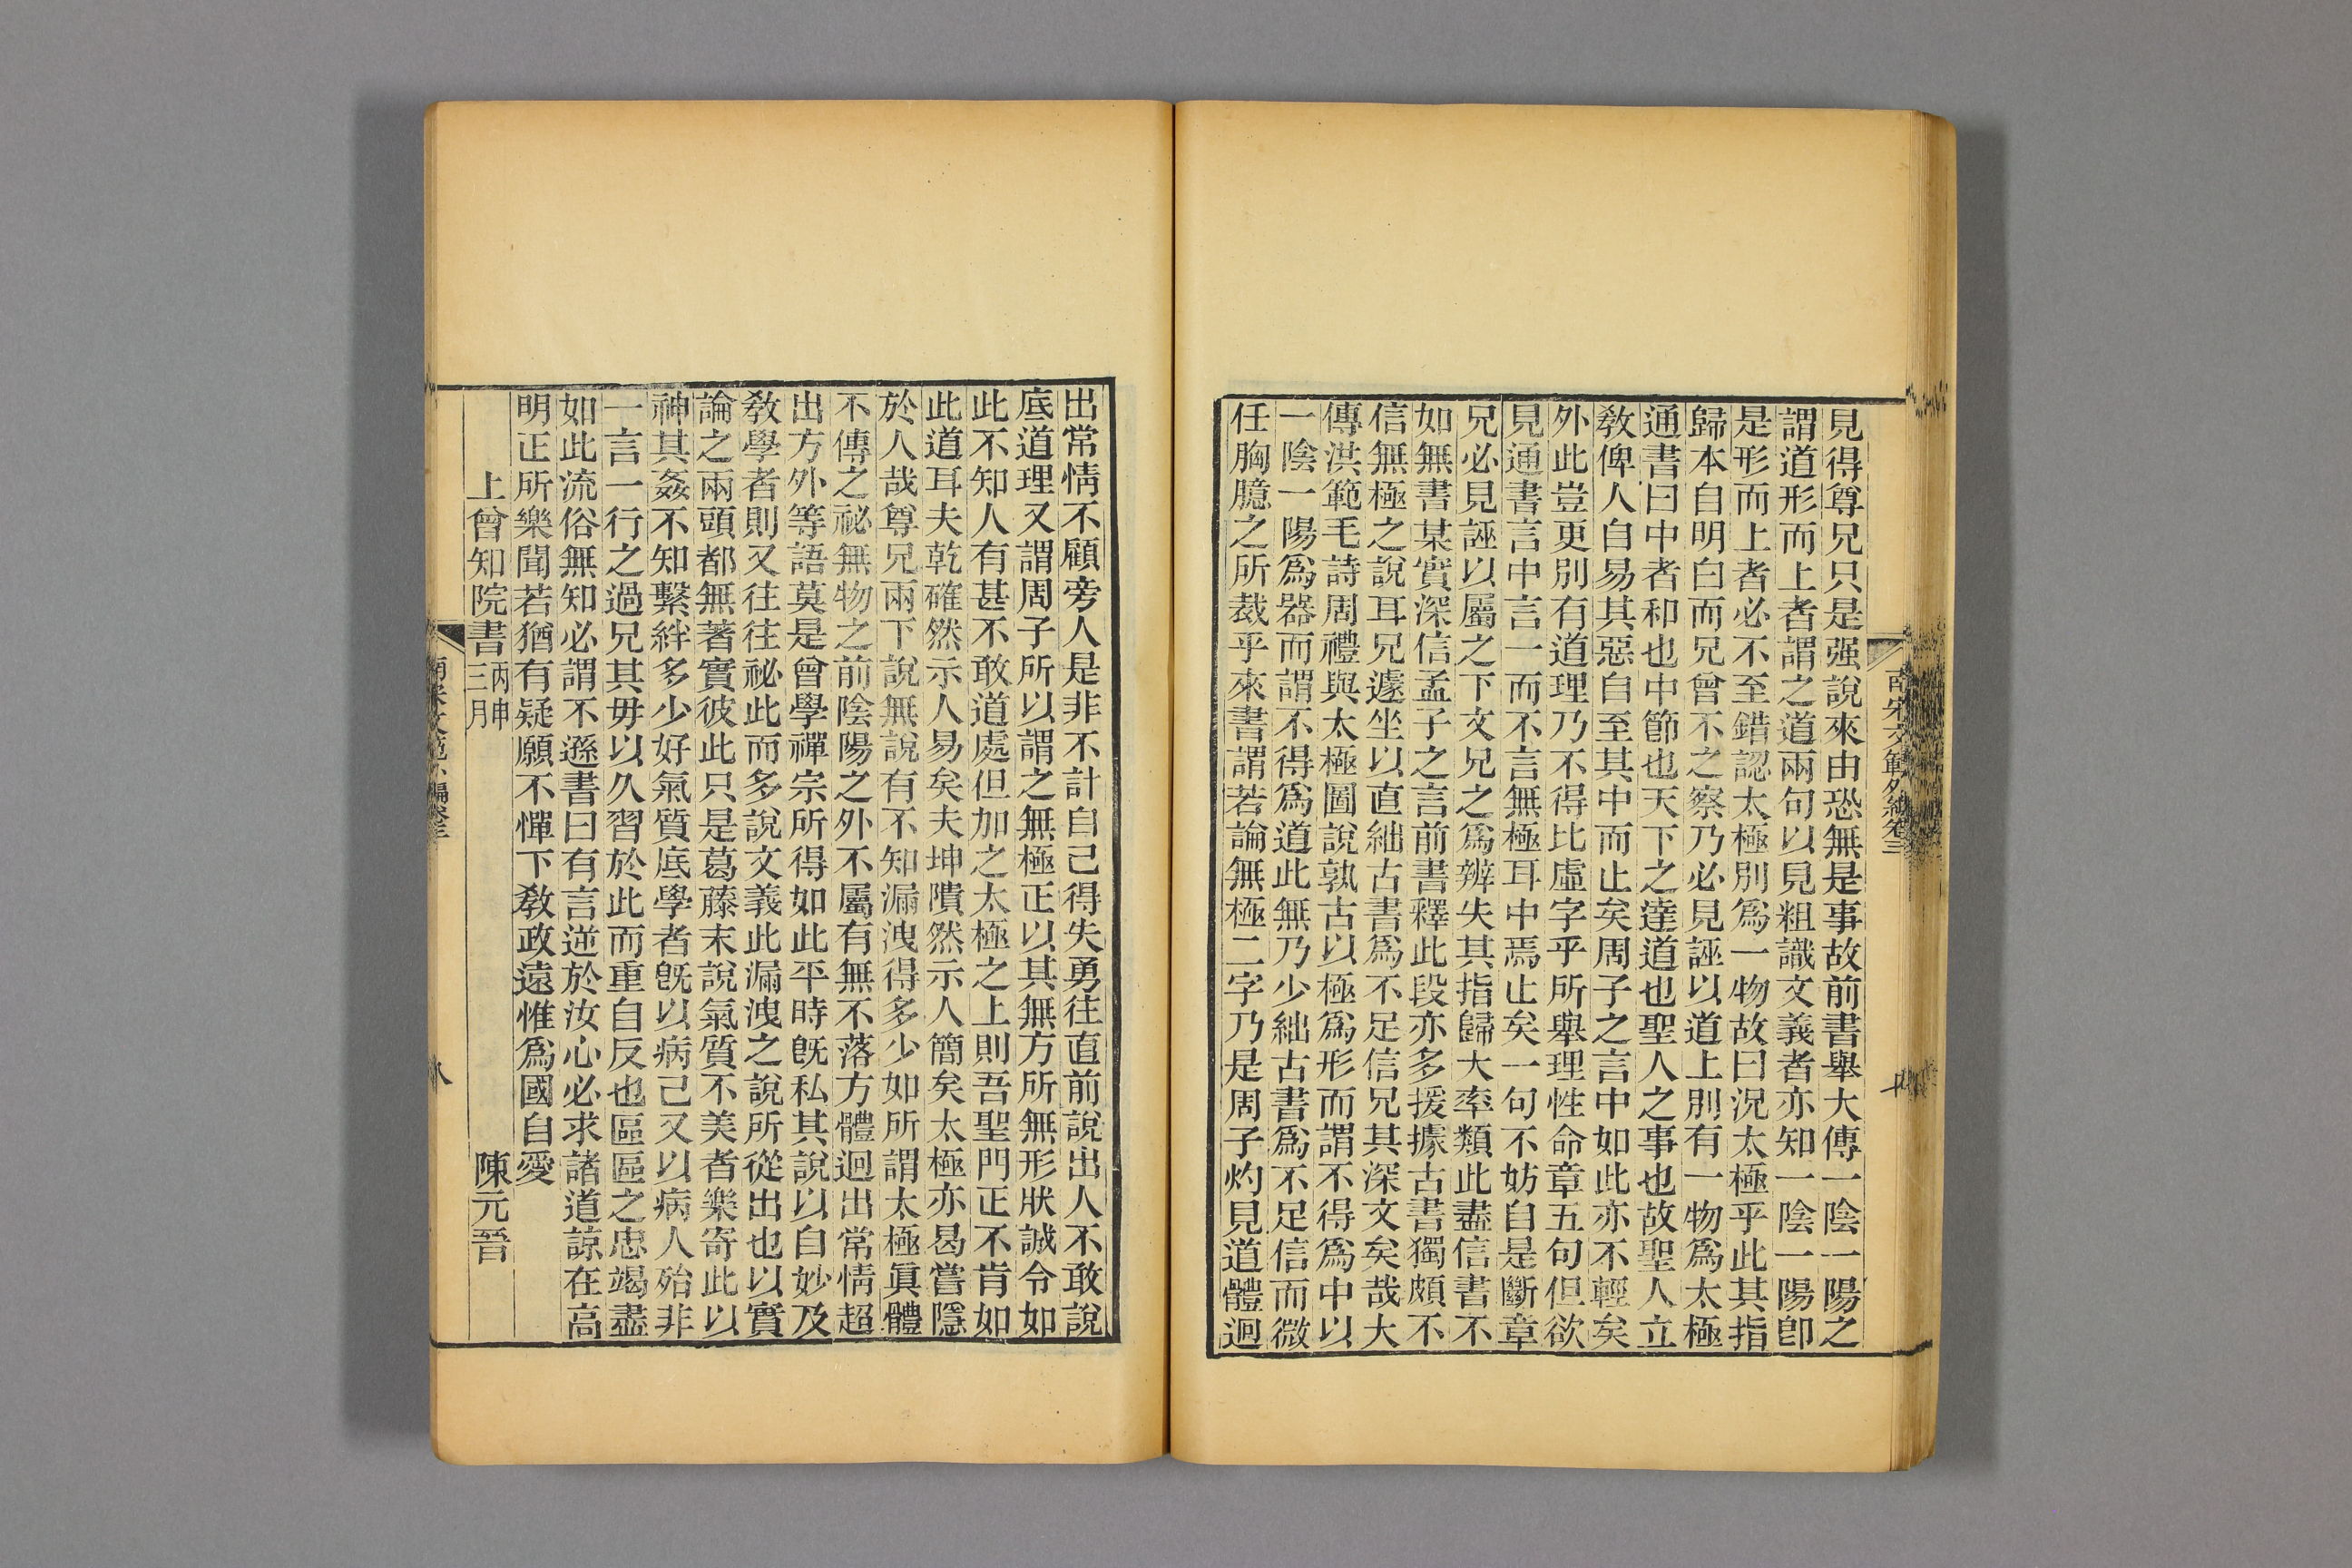 見得尊兄只是强說來由恐無是事故前書舉大傳一陰一陽之
謂道形而上者謂之道兩句以見粗識文義者亦知一陰一陽卽
是形而上者必不至錯認太極別爲一物故曰況太極乎此其指
歸本自明白而兄曾不之察乃必見誣以道上別有一物爲太極
通書曰中者和也中節也天下之達道也聖人之事也故聖人立
敎俾人自易其惡自至其中而止矣周子之言中如此亦不輕矣
外此豈更別有道理乃不得比虛字乎所舉理性命章五句但欲
見通書言中言一而不言無極耳中焉止矣一句不妨自是斷章
兄必見誣以屬之下文兄之爲辨失其指歸大率類此盡信書不
如無書某實深信孟子之言前書釋此段亦多援據古書獨頗不
信無極之說耳兄遽坐以直絀古書爲不足信兄其深文矣哉大
傳洪範毛詩周禮與太極圖說孰古以極爲形而謂不得爲中以
一陰一陽爲器而謂不得爲道此無乃少絀古書爲不足信而微
任胸臆之所裁乎來書謂若論無極二字乃是周子灼見道體迥
出常情不顧旁人是非不計自己得失勇往直前說出人不敢說
底道理又謂周子所以謂之無極正以其無方所無形狀誠令如
此不知人有甚不敢道處但加之太極之上則吾聖門正不肯如
此道耳夫乾確然示人易矣夫坤隤然示人簡矣太極亦曷嘗隱
於人哉尊兄兩下說無說有不知漏洩得多少如所謂太極眞體
不傳之祕無物之前陰陽之外不屬有無不落方體迥出常情超
出方外等語莫是曾學禪宗所得如此平時旣私其說以自妙及
敎學者則又往往祕此而多說文義此漏洩之說所從出也以實
論之兩頭都無著實彼此只是葛藤末說氣質不美者樂寄此以
神其姦不知繫絆多少好氣質底學者旣以病己又以病人殆非
一言一行之過兄其毋以久習於此而重自反也區區之忠竭盡
如此流俗無知必謂不遜書曰有言逆於汝心必求諸道諒在高
明正所樂聞若猶有疑願不憚下敎政遠惟爲國自愛
上曾知院書丙申三月 陳元晉
南宋文範外編卷三